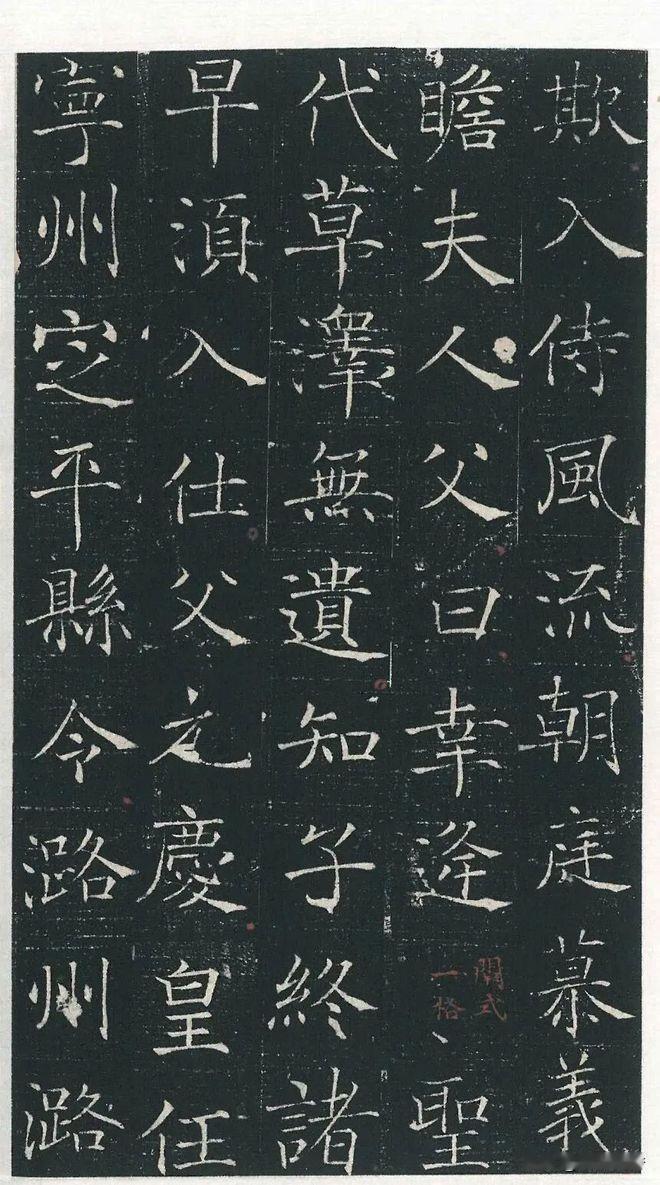 欺入侍風流朝庭慕義
瞻夫人父曰幸逄聖
闕式
一格
代草澤無遺知子終諸
早湏入仕父之慶皇任
寧州定平縣令潞州潞